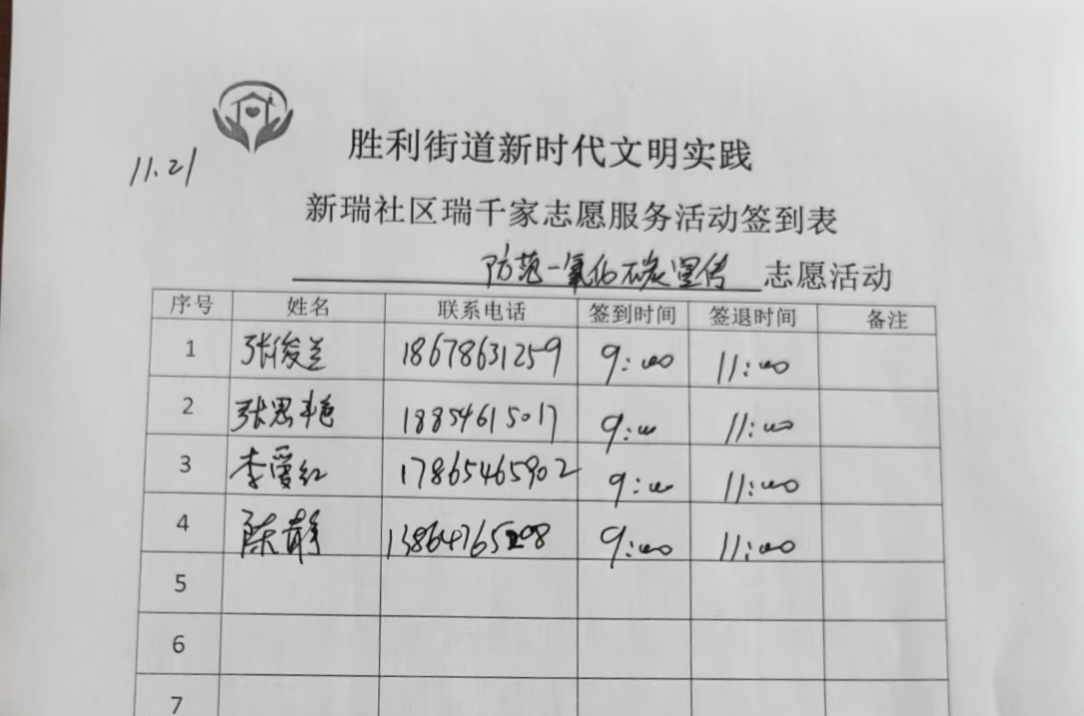 11.21
胜利街道新时代文明实践
新瑞社区瑞千家志愿服务活动签到表
防范一氧化碳宣传 志愿活动
序号 姓名 联系电话 签到时间 签退时间 备注
1 张俊兰 18678631259 9:00 11:00
2 张思艳 18854615017 9:00 11:00
3 李爱红 17865465902 9:00 11:00
4 陈静 9:00 11:00
5
6
7